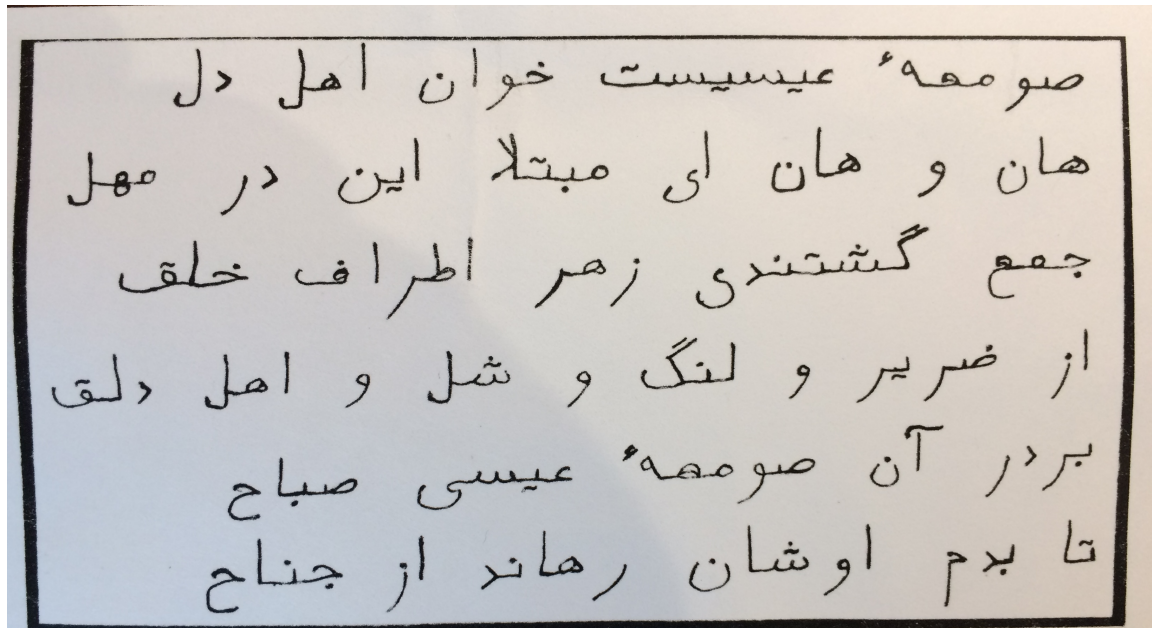 صومعهٔ عیسیست خوان اهل دل
هان و هان ای مبتلا این در مهل
جمع گشتندی زهر اطراف خلق
از ضریر و لنگ و شل و اهل دلق
بردر آن صومعهٔ عیسی صباح
تا بدم اوشان رهاند از جناح